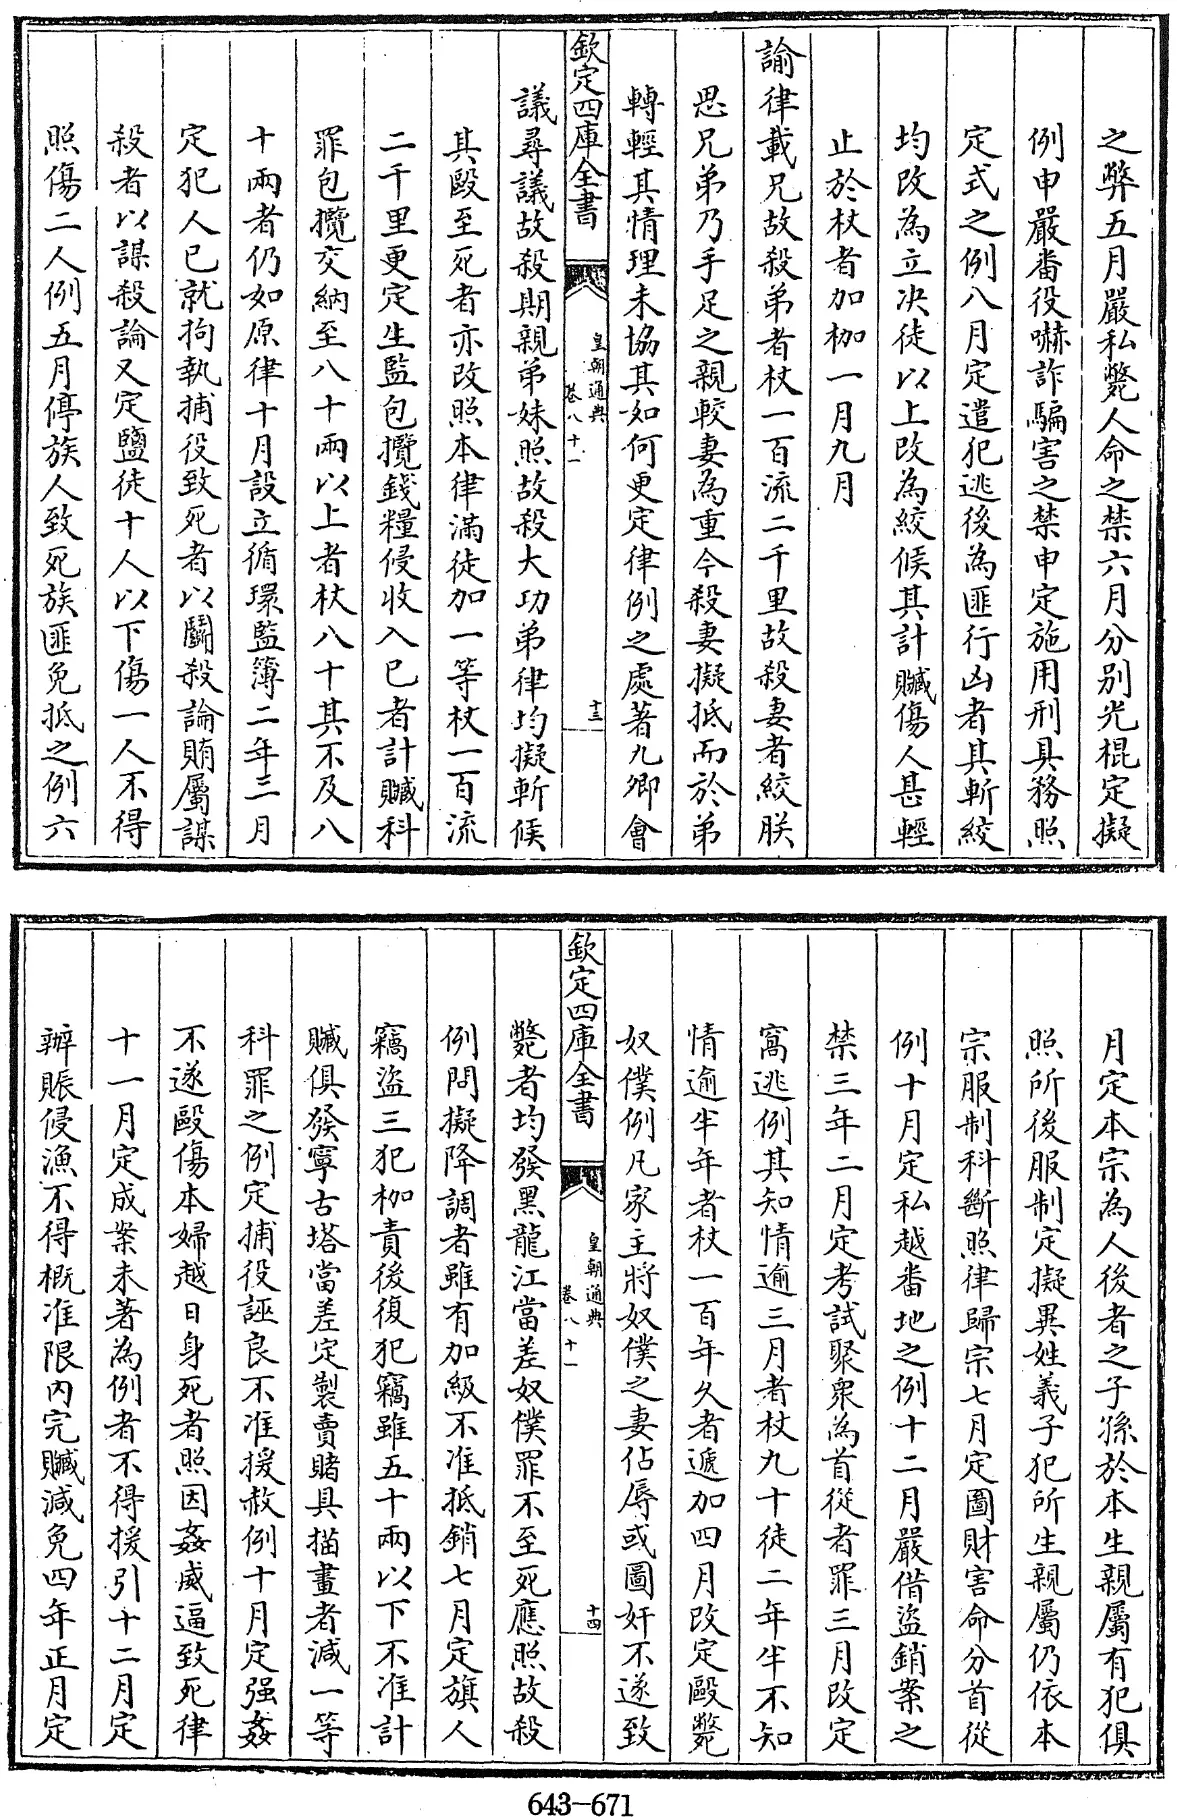 之弊五月嚴私斃人命之禁六月分别光棍定擬
例申嚴番役嚇詐騙害之禁申定施用刑具務照
定式之例八月定遣犯逃後為匪行凶者其斬絞
均改為立决徒以上改為絞候其計贓傷人甚輕
止於杖者加枷一月九月
諭律載兄故殺弟者杖一百流二千里故殺妻者絞朕
思兄弟乃手足之親較妻為重今殺妻擬抵而於弟
轉輕其情理未協其如何更定律例之處著九卿會
欽定四庫全書
皇朝通典
卷八十一
十三
議尋議故殺期親弟妹照故殺大功弟律均擬斬候
其毆至死者亦改照本律滿徒加一等杖一百流
二千里更定生監包攬錢糧侵收入已者計贓科
罪包攬交納至八十兩以上者杖八十其不及八
十兩者仍如原律十月設立循環監簿二年三月
定犯人已就拘執捕役致死者以鬬殺論賄屬謀
殺者以謀殺論又定鹽徒十人以下傷一人不得
照傷二人例五月停族人致死族匪免抵之例六
月定本宗為人後者之子孫於本生親屬有犯俱
照所後服制定擬異姓義子犯所生親屬仍依本
宗服制科斷照律歸宗七月定圖財害命分首從
例十月定私越番地之例十二月嚴借盜銷案之
禁三年二月定考試聚衆為首從者罪三月改定
窩逃例其知情逾三月者杖九十徒二年半不知
情逾半年者杖一百年久者遞加四月改定毆斃
奴僕例凡家主將奴僕之妻佔辱或圖奸不遂致
欽定四庫全書
皇朝通典
卷八十一
十四
斃者均發黑龍江當差奴僕罪不至死應照故殺
例問擬降調者雖有加級不准抵銷七月定旗人
竊盜三犯枷責後復犯竊雖五十兩以下不准計
贓俱發寧古塔當差定製賣賭具描畫者減一等
科罪之例定捕役誣良不准援赦例十月定强姦
不遂毆傷本婦越日身死者照因姦威逼致死律
十一月定成案未著為例者不得援引十二月定
辦賑侵漁不得概准限内完贓減免四年正月定
643-671